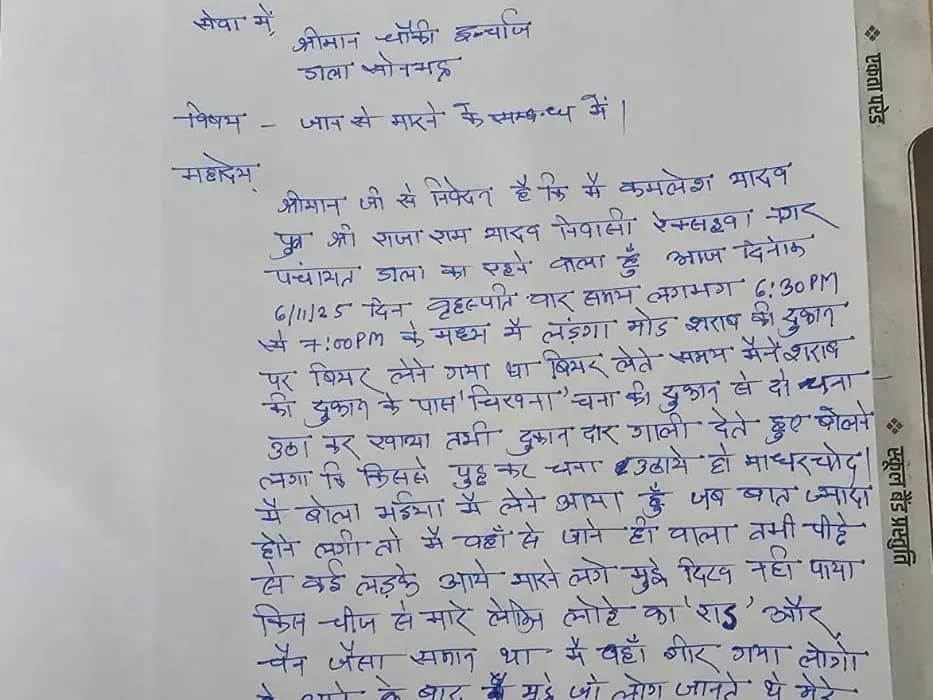 सेवा में,
श्रीमान चौकी इन्चार्ज
डाला सोनभद्र
विषय - जान से मारने के सम्बन्ध में|
महोदय,
श्रीमान जी से निवेदन है कि मै कमलेश यादव
पुत्र श्री राजा राम यादव निवासी सेक्सइवा नगर
पंचायत डाला का रहने वाला हूँ आज दिनांक
6/11/25 दिन वृहस्पति वार समय लगभग 6:30PM
से 7:00PM के मध्य मै लंड़गा मोड शराब की दुकान
पर बियर लेने गया था बियर लेते समय मैने शराब
की दुकान के पास 'चिखना' चना की दुकान से दो चना
उठा कर खाया तभी दुकान दार गाली देते हुए बोलने
लगा कि किससे पुछ कर चना उठाये हो माधरचोद|
मै बोला भईया मै लेने आया हूँ जब बात ज्यादा
होने लगी तो मै वहाँ से जाने ही वाला तभी पीछे
से कई लड़के आये मारने लगे मुझे दिख नही पाया
किस चीज से मारे लेकिन लोहे का 'राड' और
चैन जैसा समान था मै वहाँ गीर गया लोगो
के बाद मुझे जो लोग जानते थे मेरे
एकता परेड
स्कूल बैंड प्रस्तुति